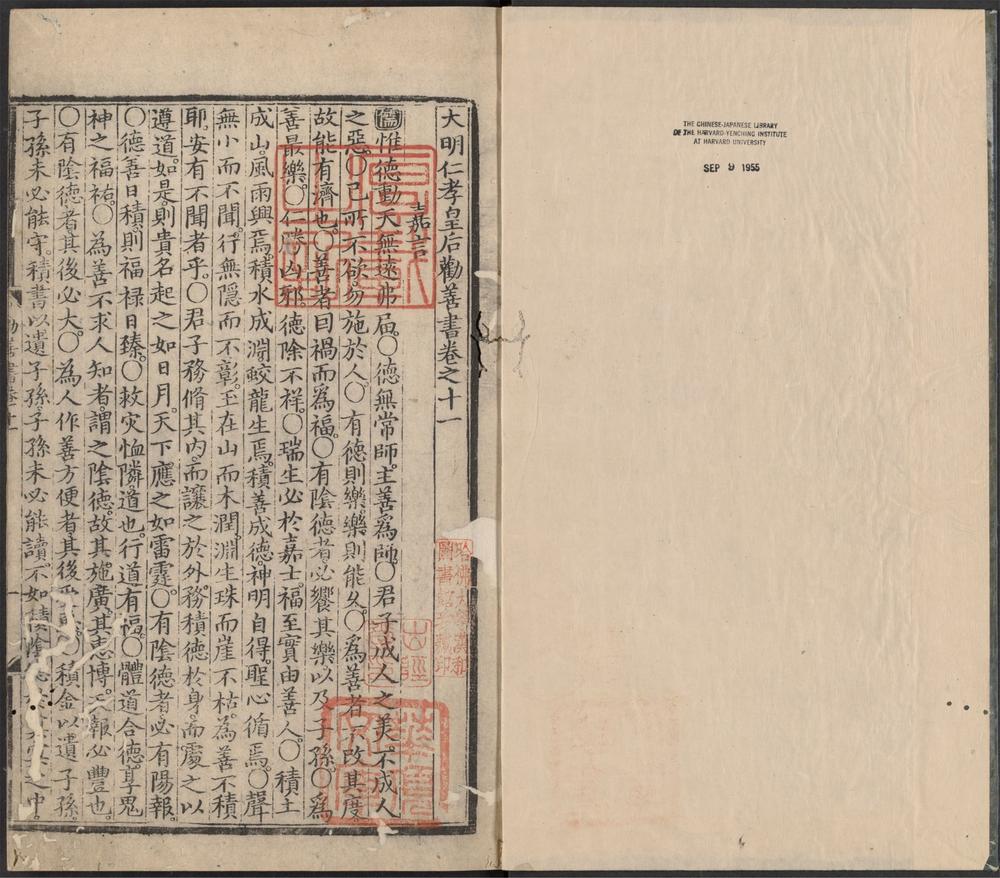 THE CHINESE-JAPANESE LIBRARY
OF THE HARVARD-YENCHING INSTITUTE
AT HARVARD UNIVERSITY
SEP 9 1955
大明仁孝皇后勸善書卷之十一
嘉言
儒惟德動天無遠弗屆〇德無常師主善爲師〇君子成人之美不成人
之惡〇己所不欲勿施於人〇有德則樂樂則能久〇爲善者不改其度
故能有濟也〇善者因禍而爲福〇有陰德者必饗其樂以及子孫〇爲
善最樂〇仁勝凶邪德除不祥〇瑞生必於嘉士福至實由善人〇積土
成山風雨興焉積水成淵蛟龍生焉積善成德神明自得聖心循焉〇聲
無小而不聞行無隱而不彰玉在山而木潤淵生珠而崖不枯為善不積
耶安有不聞者乎〇君子務脩其内而讓之於外務積德於身而處之以
遵道如是則貴名起之如日月天下應之如雷霆〇有陰德者必有陽報
〇德善日積則福禄日臻〇救灾恤隣道也行道有福〇體道合德享鬼
神之福祐〇為善不求人知者謂之陰德故其施廣其志博天報必豐也
〇有陰德者其後必大〇為人作善方便者其後〇積金以遺子孫
子孫未必能守積書以遺子孫子孫未必能讀不如積陰之中